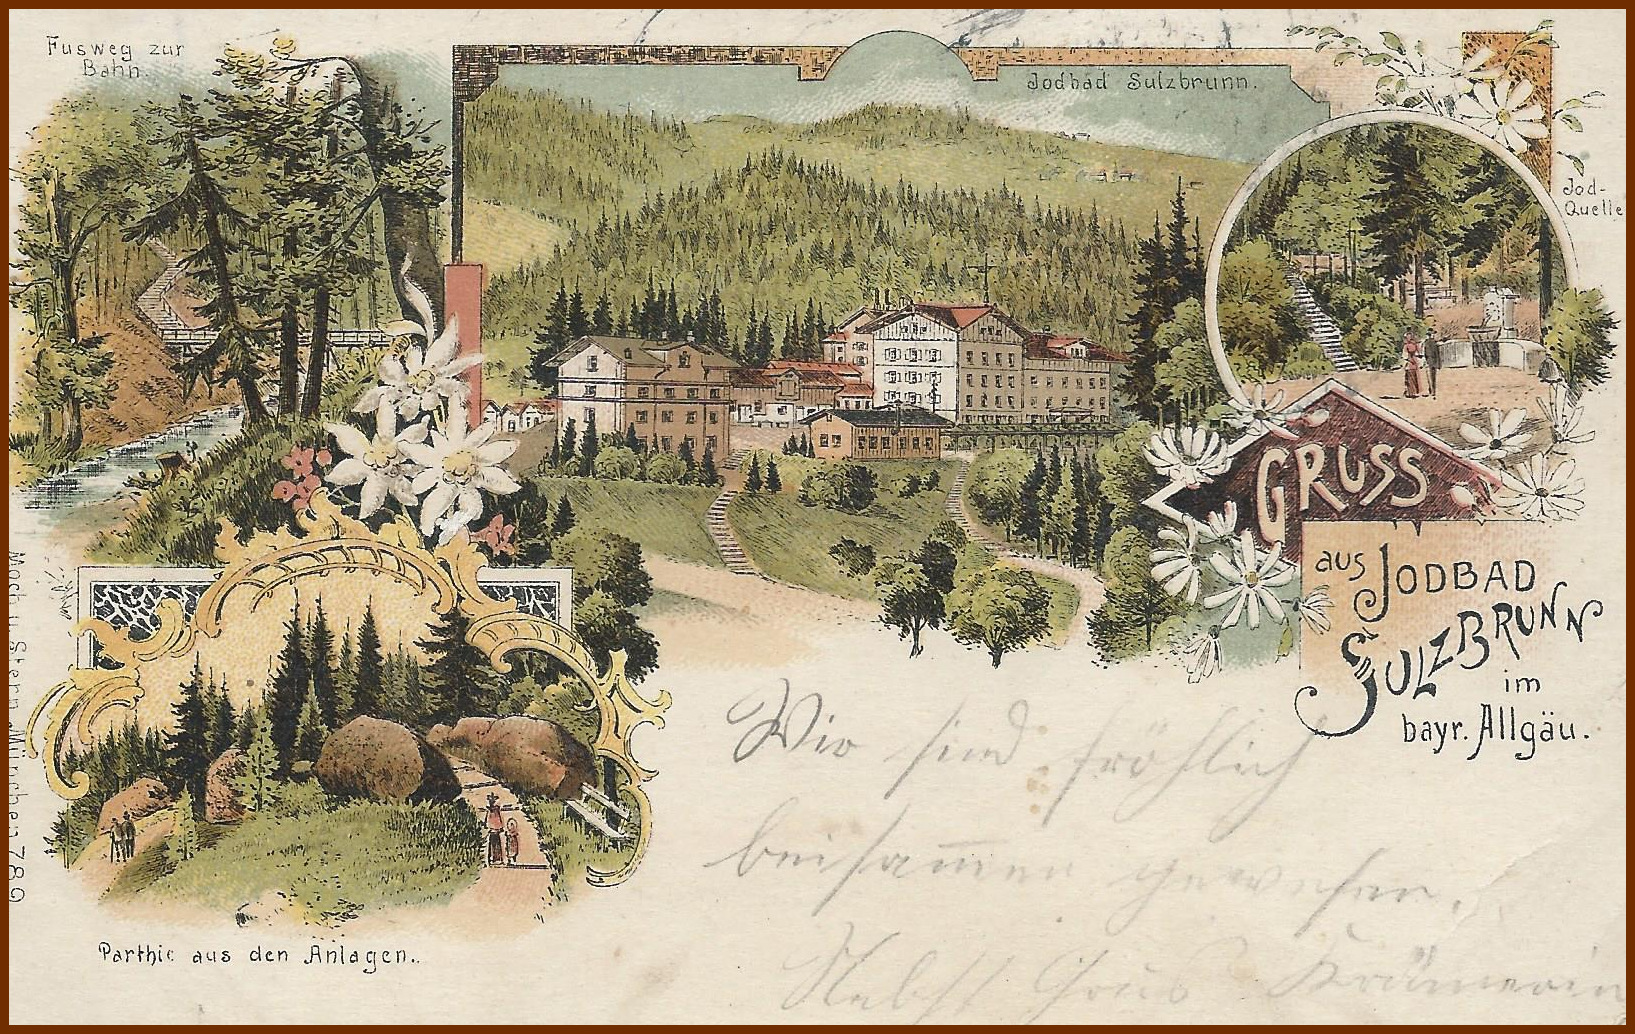 Fusweg zur
Bahn.
Jodbad Sulzbrunn.
Jod-
Quelle
GRUSS
aus JODBAD
SULZBRUNN
im
bayr. Allgäu.
Wir sind fröhlich
beisammen gewesen
Nebst
Parthie aus den Anlagen.
Mosch u. Stern München 789